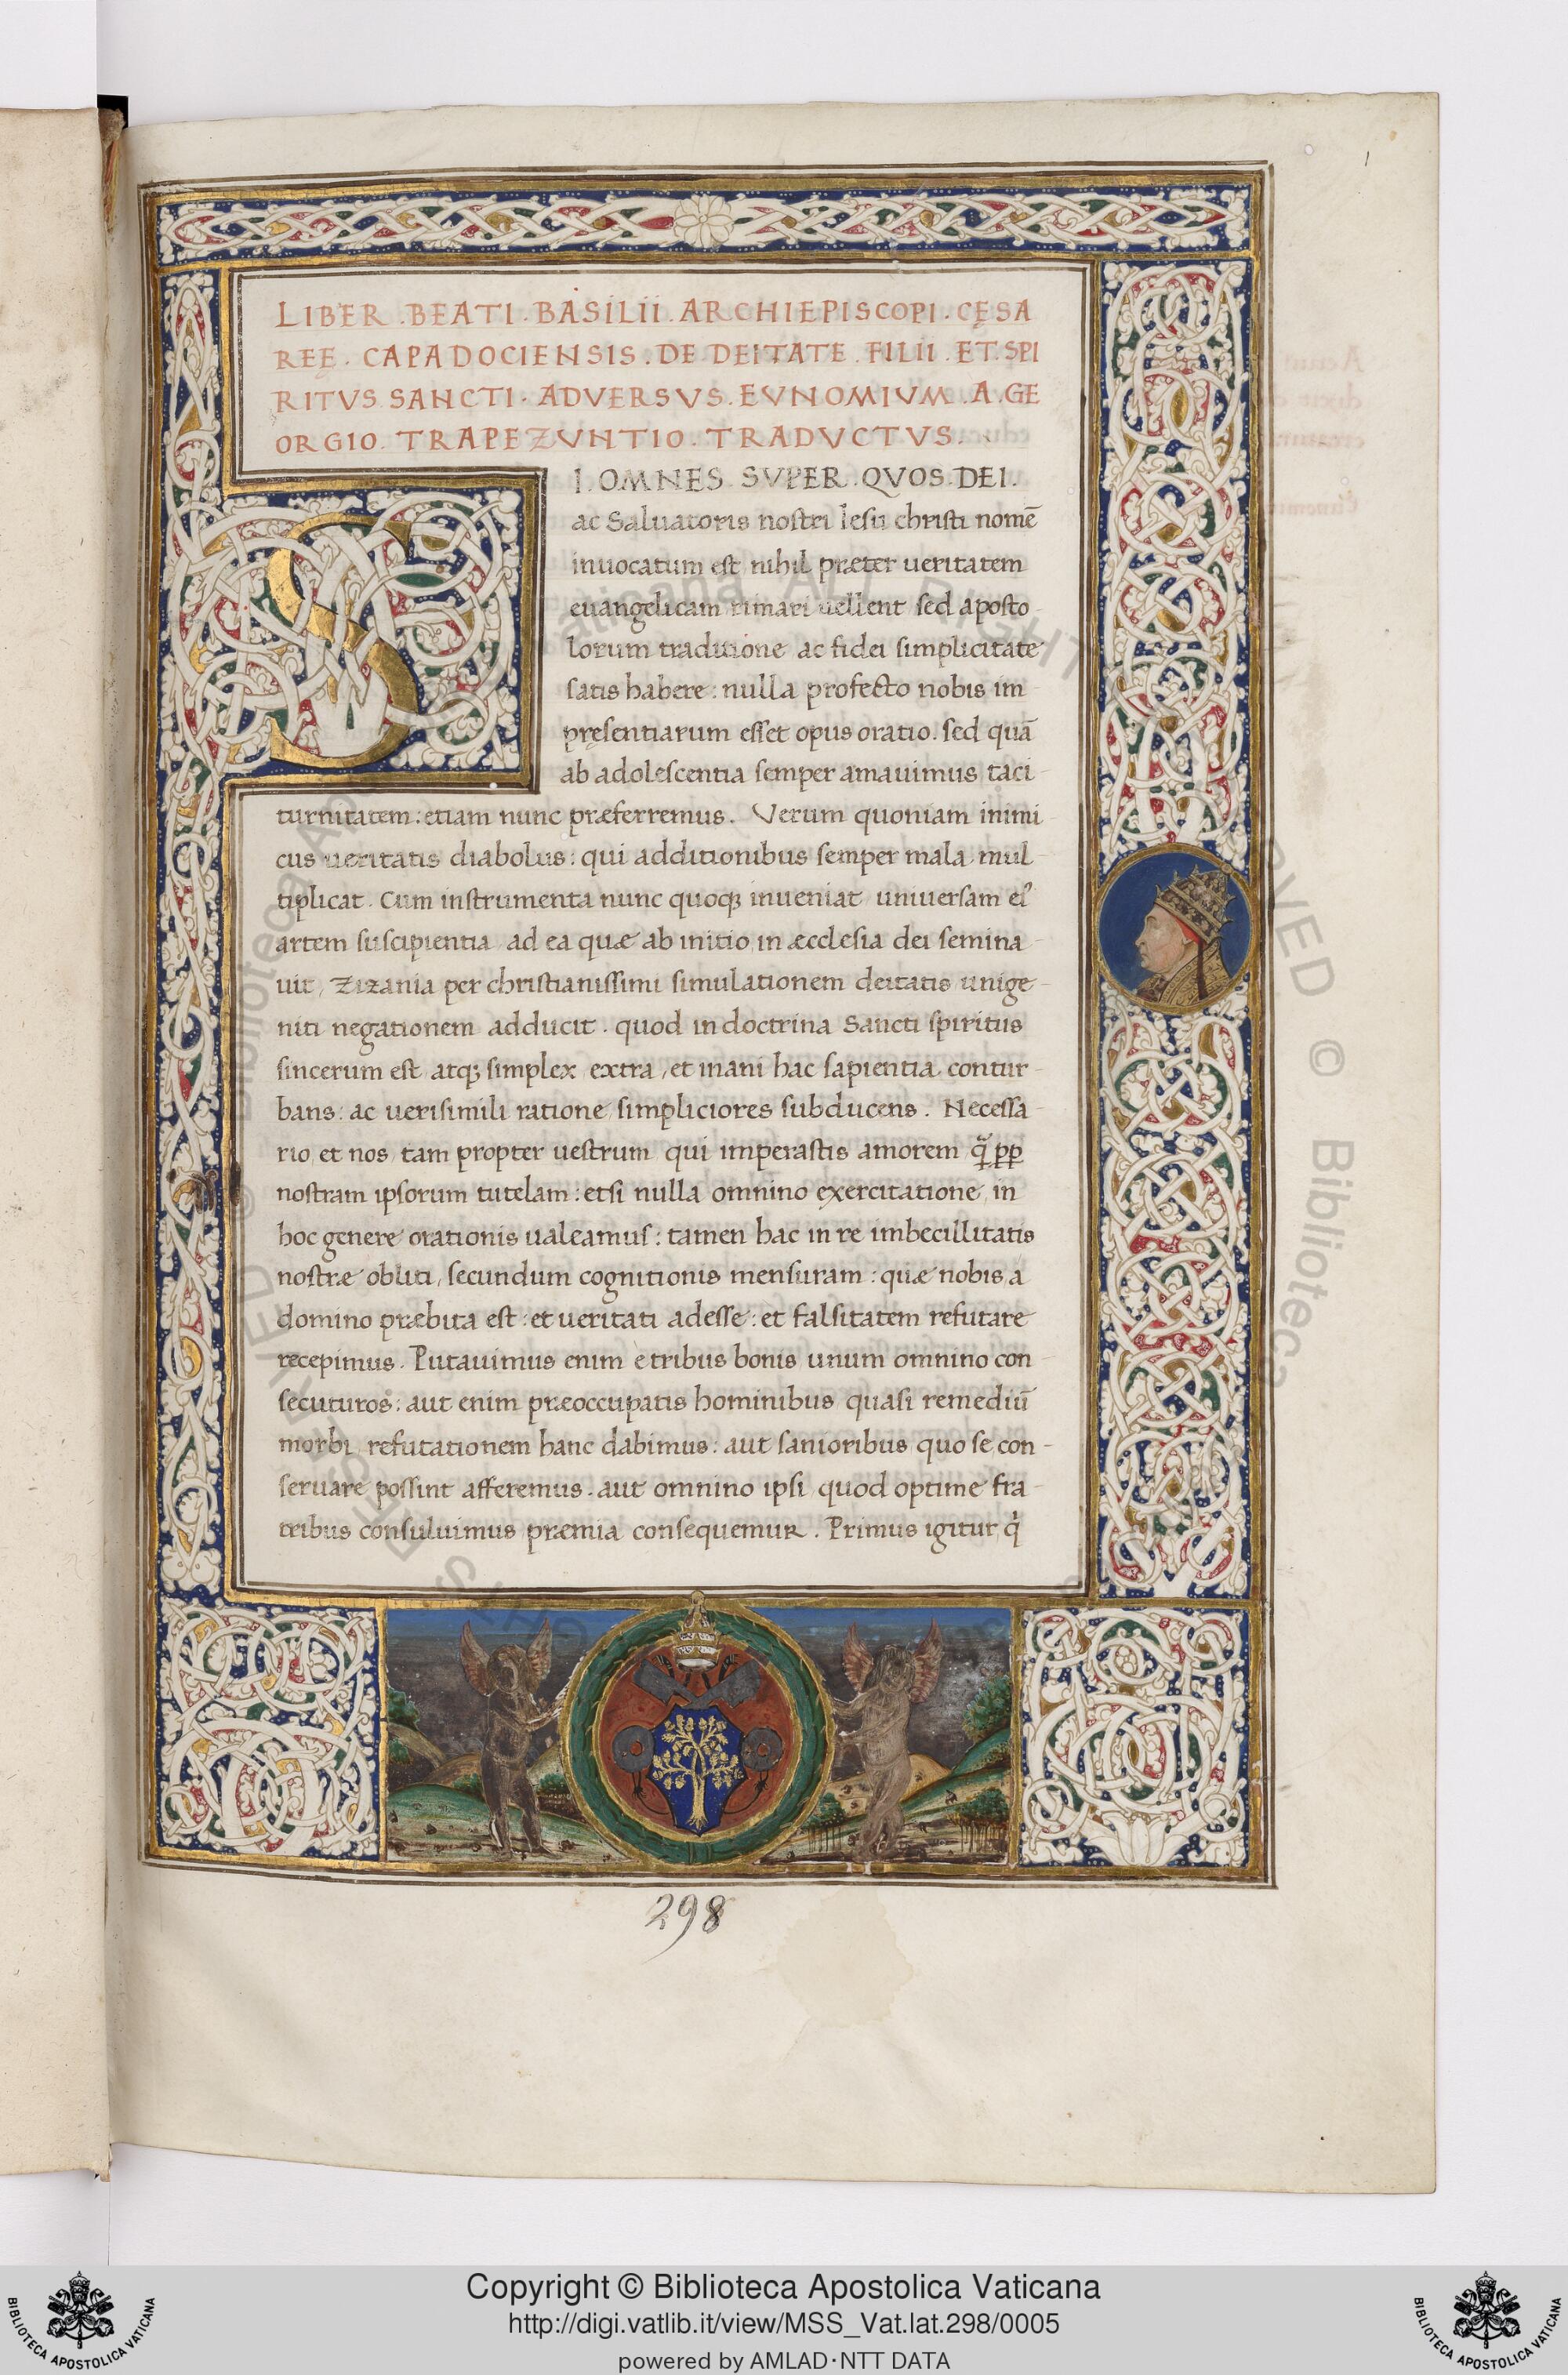 1
LIBER . BEATI . BASILII . ARCHIEPISCOPI . CĘSA
REĘ . CAPADOCIENSIS . DE DEITATE . FILII . ET . SPI
RITVS SANCTI . ADVERSVS . EVNOMIVM . A . GE
ORGIO . TRAPEZVNTIO . TRADVCTVS .
SI . OMNES . SVPER . QVOS . DEI .
ac Saluatoris nostri Iesu christi nomē
inuocatum est nihil præter ueritatem
euangelicam rimari uellent sed aposto-
lorum traditione ac fidei simplicitate
satis habere : nulla profecto nobis im
pręsentiarum esset opus oratio . sed quā
ab adolescentia semper amauimus taci-
turnitatem : etiam nunc præferremus . Verum quoniam inimi-
cus ueritatis diabolus : qui additionibus semper mala mul-
tiplicat . Cum instrumenta nunc quoq; inueniat uniuersam ei᾿
artem suscipientia ad ea quæ ab initio in æcclesia dei semina-
uit , zizania per christianissimi simulationem deitatis unige-
niti negationem adducit . quod in doctrina Sancti spiritus
sincerum est atq; simplex extra , et inani hac sapientia contur-
bans : ac uerisimili ratione simpliciores subducens . Necessa-
rio et nos tam propter uestrum qui imperastis amorem q̃ pp
nostram ipsorum tutelam : etsi nulla omnino exercitatione in
hoc genere orationis ualeamus : tamen hac in re imbecillitatis
nostræ obliti , secundum cognitionis mensuram : quæ nobis a
domino præbita est : et ueritati adesse : et falsitatem refutare
recepimus . Putauimus enim e tribus bonis unum omnino con-
secuturos : aut enim præoccupatis hominibus quasi remediū
morbi refutationem hanc dabimus : aut sanioribus quo se con-
seruare possint afferemus . aut omnino ipsi quod optime fra-
tribus consuluimus præmia consequemur . Primus igitur q̇
298
Copyright © Biblioteca Apostolica Vaticana
http://digi.vatlib.it/view/MSS_Vat.lat.298/0005
powered by AMLAD·NTT DATA
BIBLIOTECA APOSTOLICA VATICANA
BIBLIOTECA APOSTOLICA VATICANA